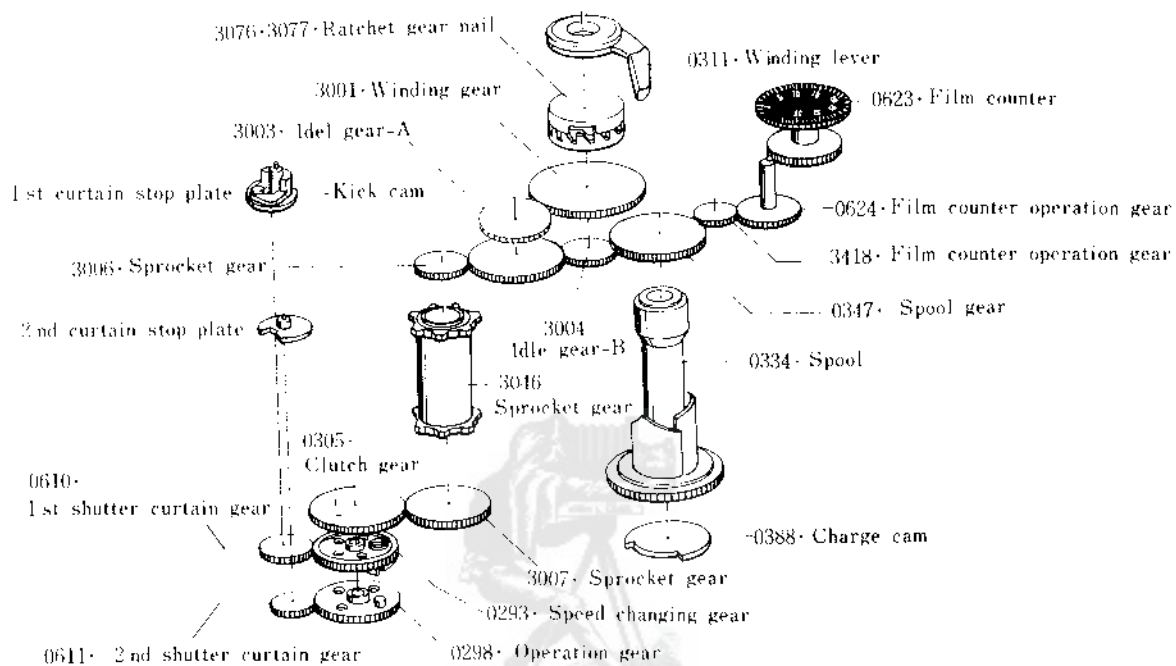 3076·3077·Ratchet gear nail
0311·Winding lever
3001·Winding gear
0623·Film counter
3003·Idel gear-A
1st curtain stop plate
-Kick cam
-0624·Film counter operation gear
3006·Sprocket gear
3418·Film counter operation gear
0347·Spool gear
2nd curtain stop plate
3004
Idle gear-B
0334·Spool
3046
Sprocket gear
0305·
Clutch gear
0610·
1st shutter curtain gear
-0388·Charge cam
3007·Sprocket gear
0293·Speed changing gear
0611·2nd shutter curtain gear
0298·Operation gear